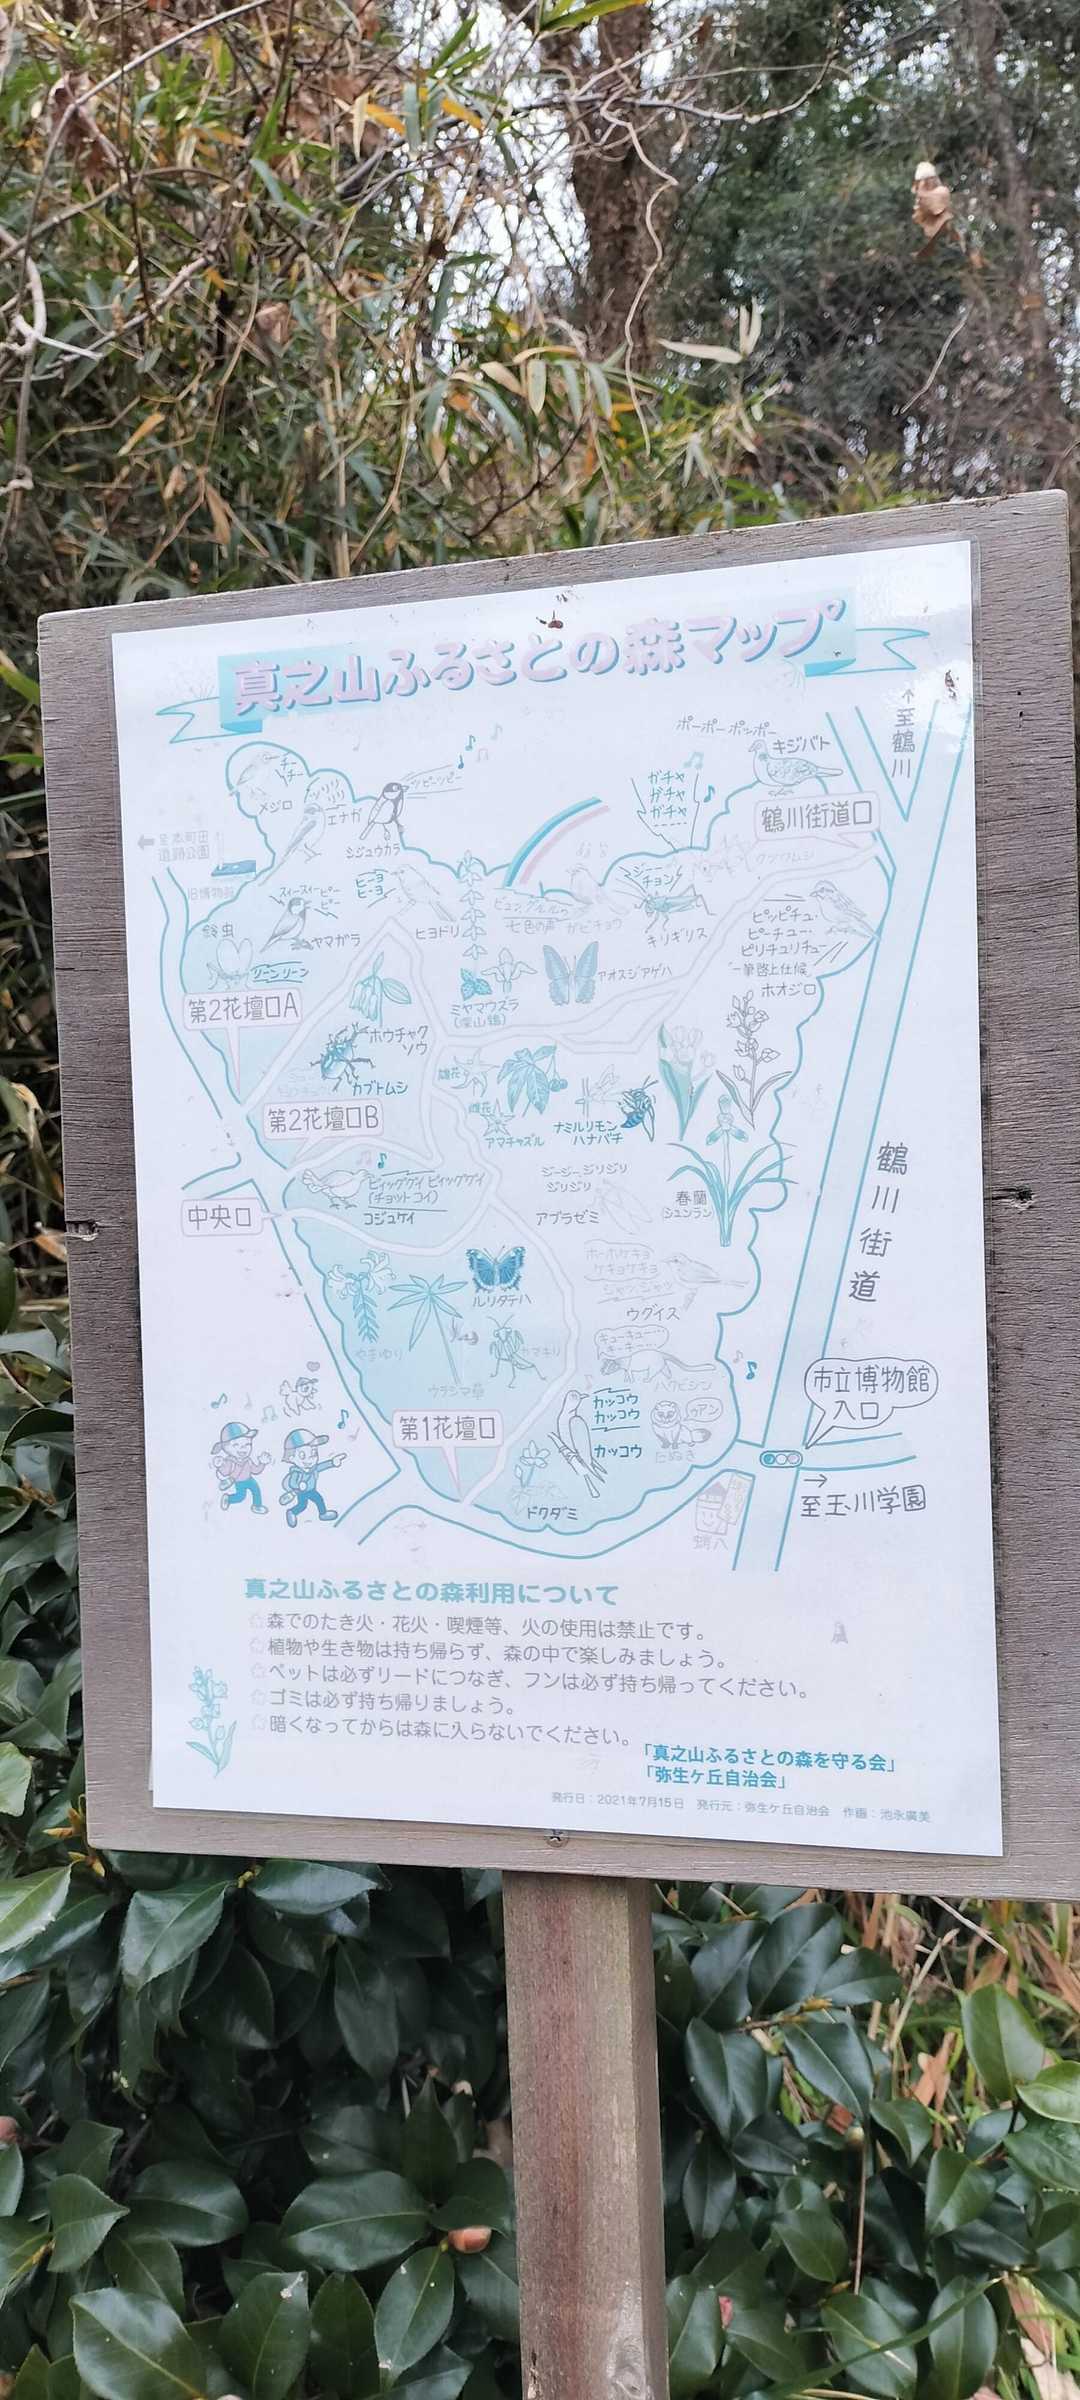 真之山ふるさとの森マップ
↑至鶴川
ポーポー ポッポー
キジバト
チーチー
メジロ
ツリリリリ
エナガ
ツツピーツツピー
シジュウカラ
ガチャ
ガチャ
ガチャ
鶴川街道口
クツワムシ
←至本町田
遺跡公園
旧博物館
スィースィーピー
ピー
ヤマガラ
ヒーヨ
ヒーヨ
ヒヨドリ
七色の声
ガビチョウ
ジーー
チョン
キリギリス
ピッピチュ・
ピーチュー・
ピリチュリチュー
"一筆啓上仕候"
ホオジロ
鈴虫
リーンリーン
第2花壇口A
ホウチャク
ソウ
ミヤマウズラ
(深山鶉)
アオスジアゲハ
カブトムシ
雄花
雌花
アマチャズル
ナミルリモン
ハナバチ
第2花壇口B
ピィッググイ ピィッググイ
(チョットコイ)
コジュケイ
ジージー、ジリジリ
ジリジリ
アブラゼミ
春蘭
シュンラン
鶴川街道
中央口
ホーホケキョ
ケキョケキョ
ウグイス
ルリタテハ
やまゆり
ウラシマ草
カマキリ
キューキュー…
キーキー…
ハクビシン
カッコウ
カッコウ
カッコウ
クアン
たぬき
第1花壇口
ドクダミ
市立博物館
入口
→
至玉川学園
蛸八
真之山ふるさとの森利用について
森でのたき火・花火・喫煙等、火の使用は禁止です。
植物や生き物は持ち帰らず、森の中で楽しみましょう。
ペットは必ずリードにつなぎ、フンは必ず持ち帰ってください。
ゴミは必ず持ち帰りましょう。
暗くなってからは森に入らないでください。
「真之山ふるさとの森を守る会」
「弥生ヶ丘自治会」
発行日：2021年7月15日 発行元：弥生ケ丘自治会 作画：池永廣美